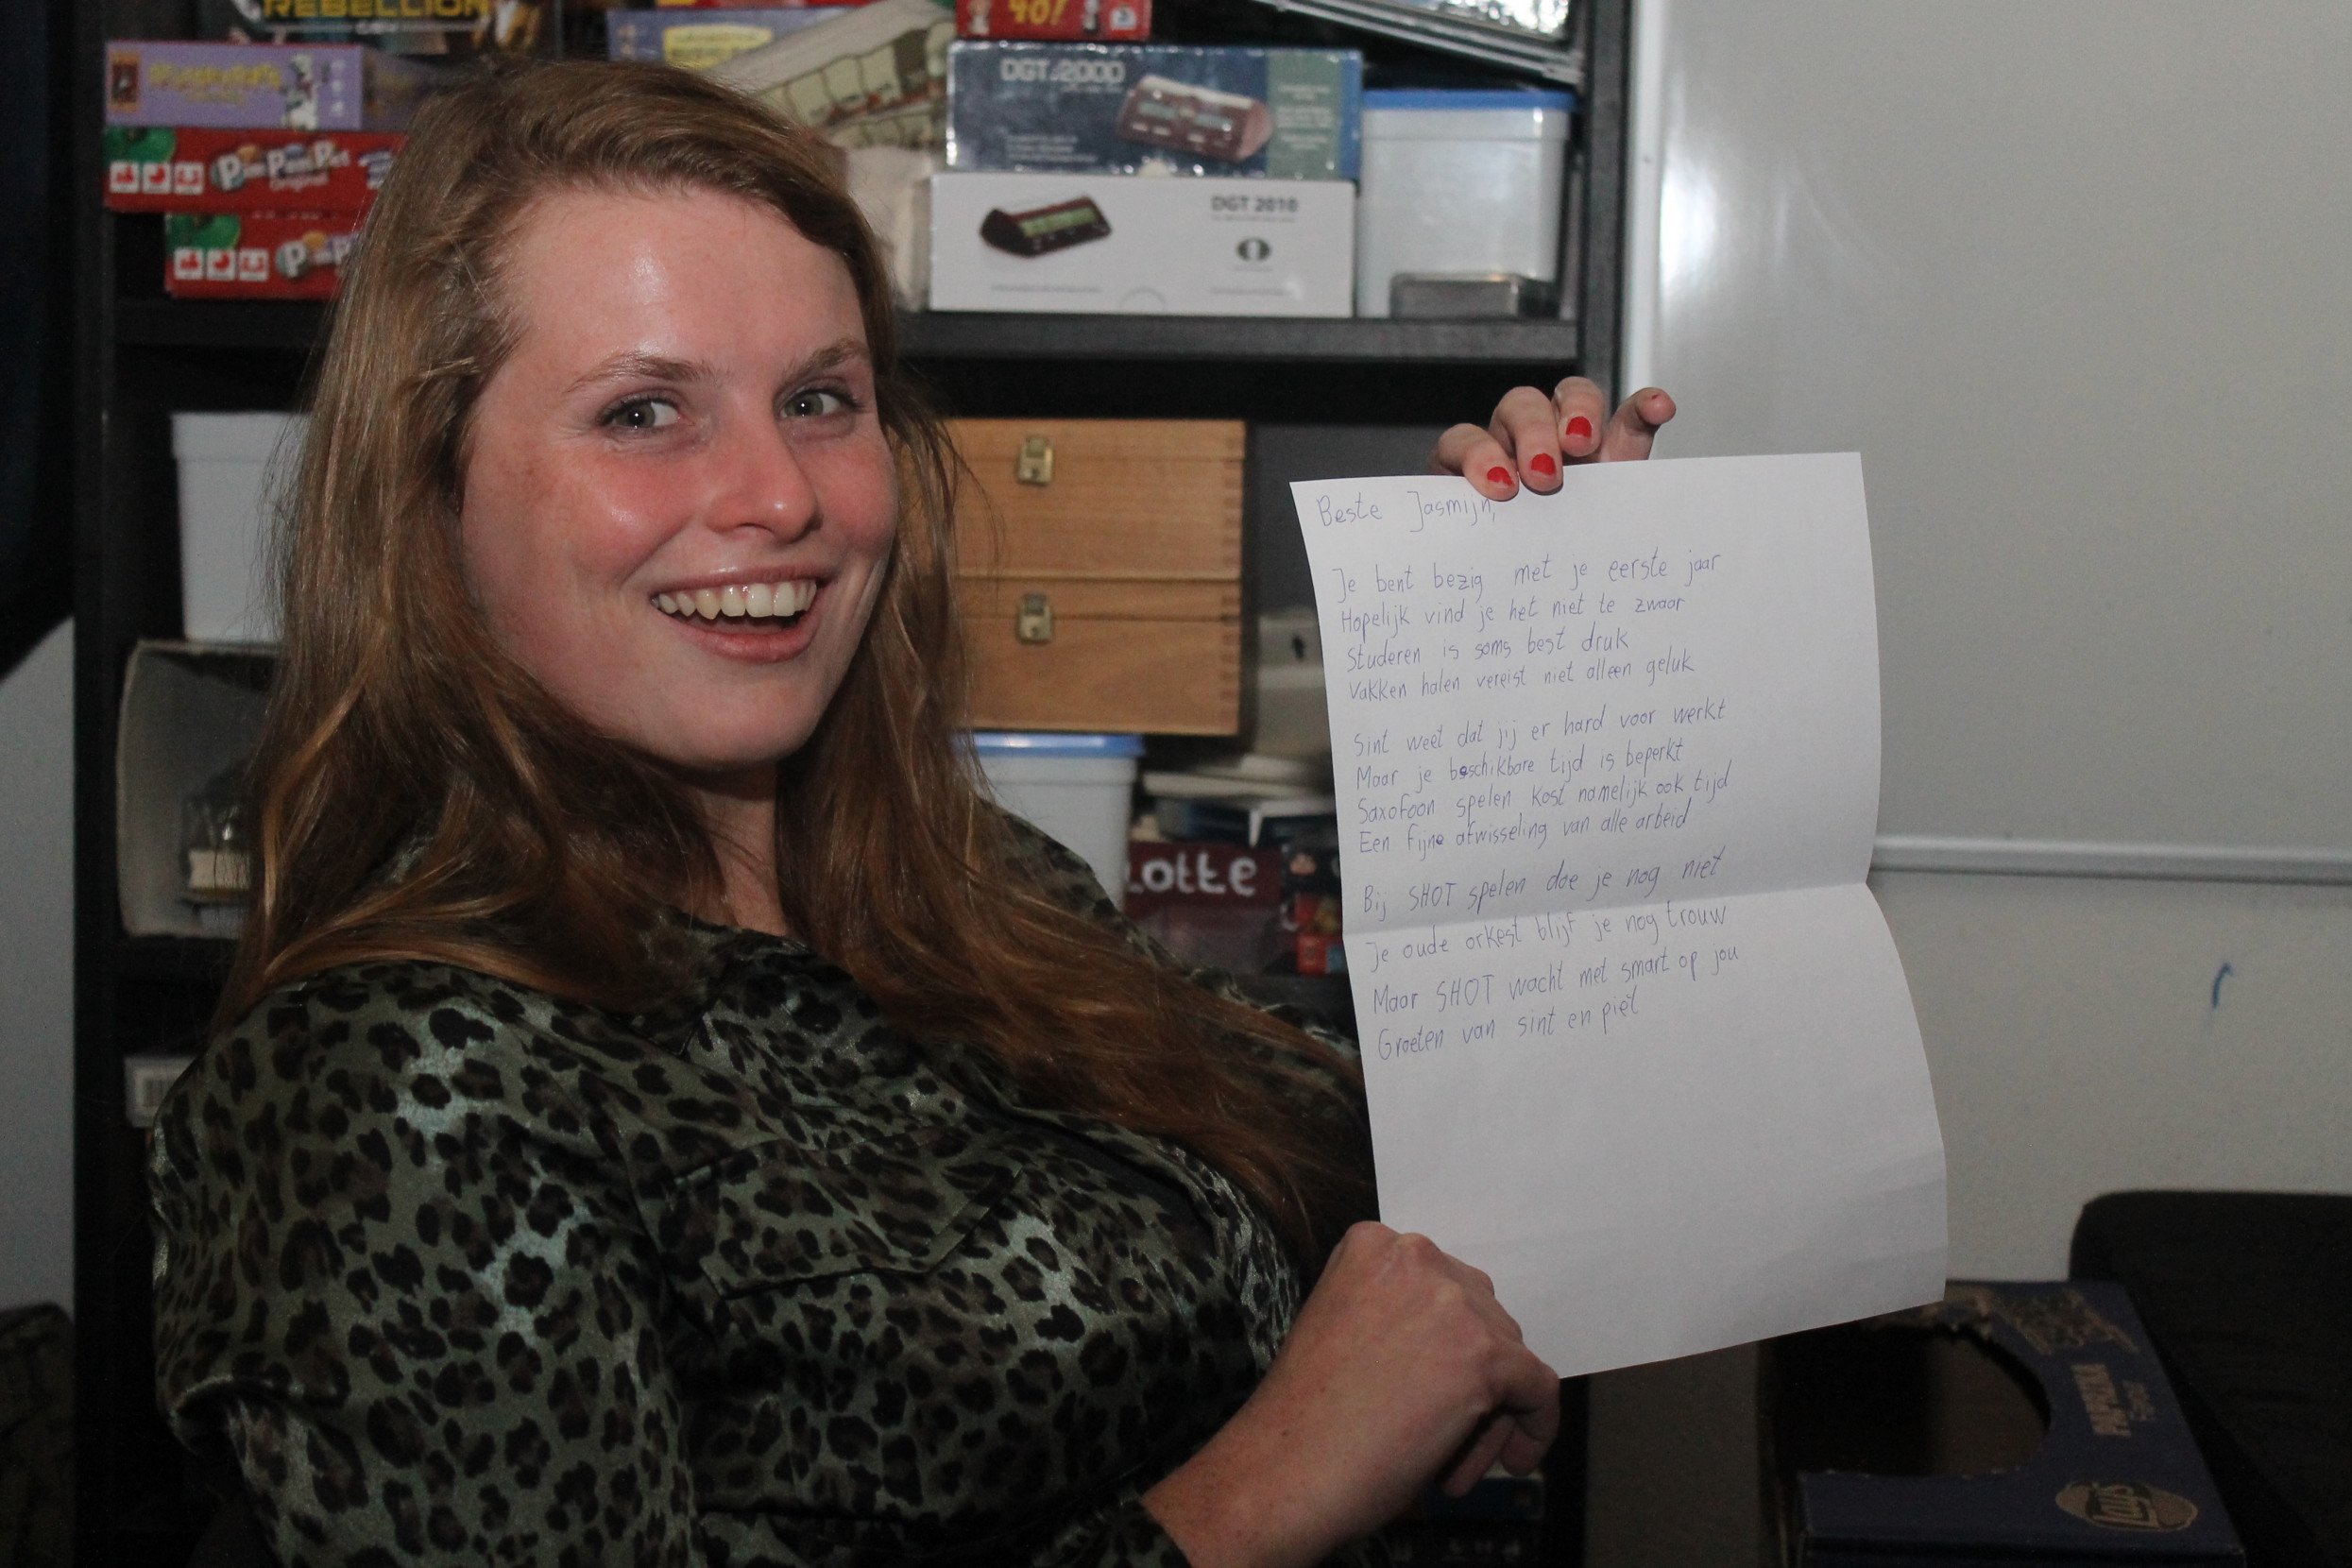 REBELLION
40!
DGT 2000
Pim Pam Pet
Original
DGT 2010
Lotte
Beste Jasmijn,
Je bent bezig met je eerste jaar
Hopelijk vind je het niet te zwaar
Studeren is soms best druk
Vakken halen vereist niet alleen geluk
Sint weet dat jij er hard voor werkt
Maar je beschikbare tijd is beperkt
Saxofoon spelen kost namelijk ook tijd
Een fijne afwisseling van alle arbeid
Bij SHOT spelen doe je nog niet
Je oude orkest blijf je nog trouw
Maar SHOT wacht met smart op jou
Groeten van sint en piet
PAPRIKA
Lay's